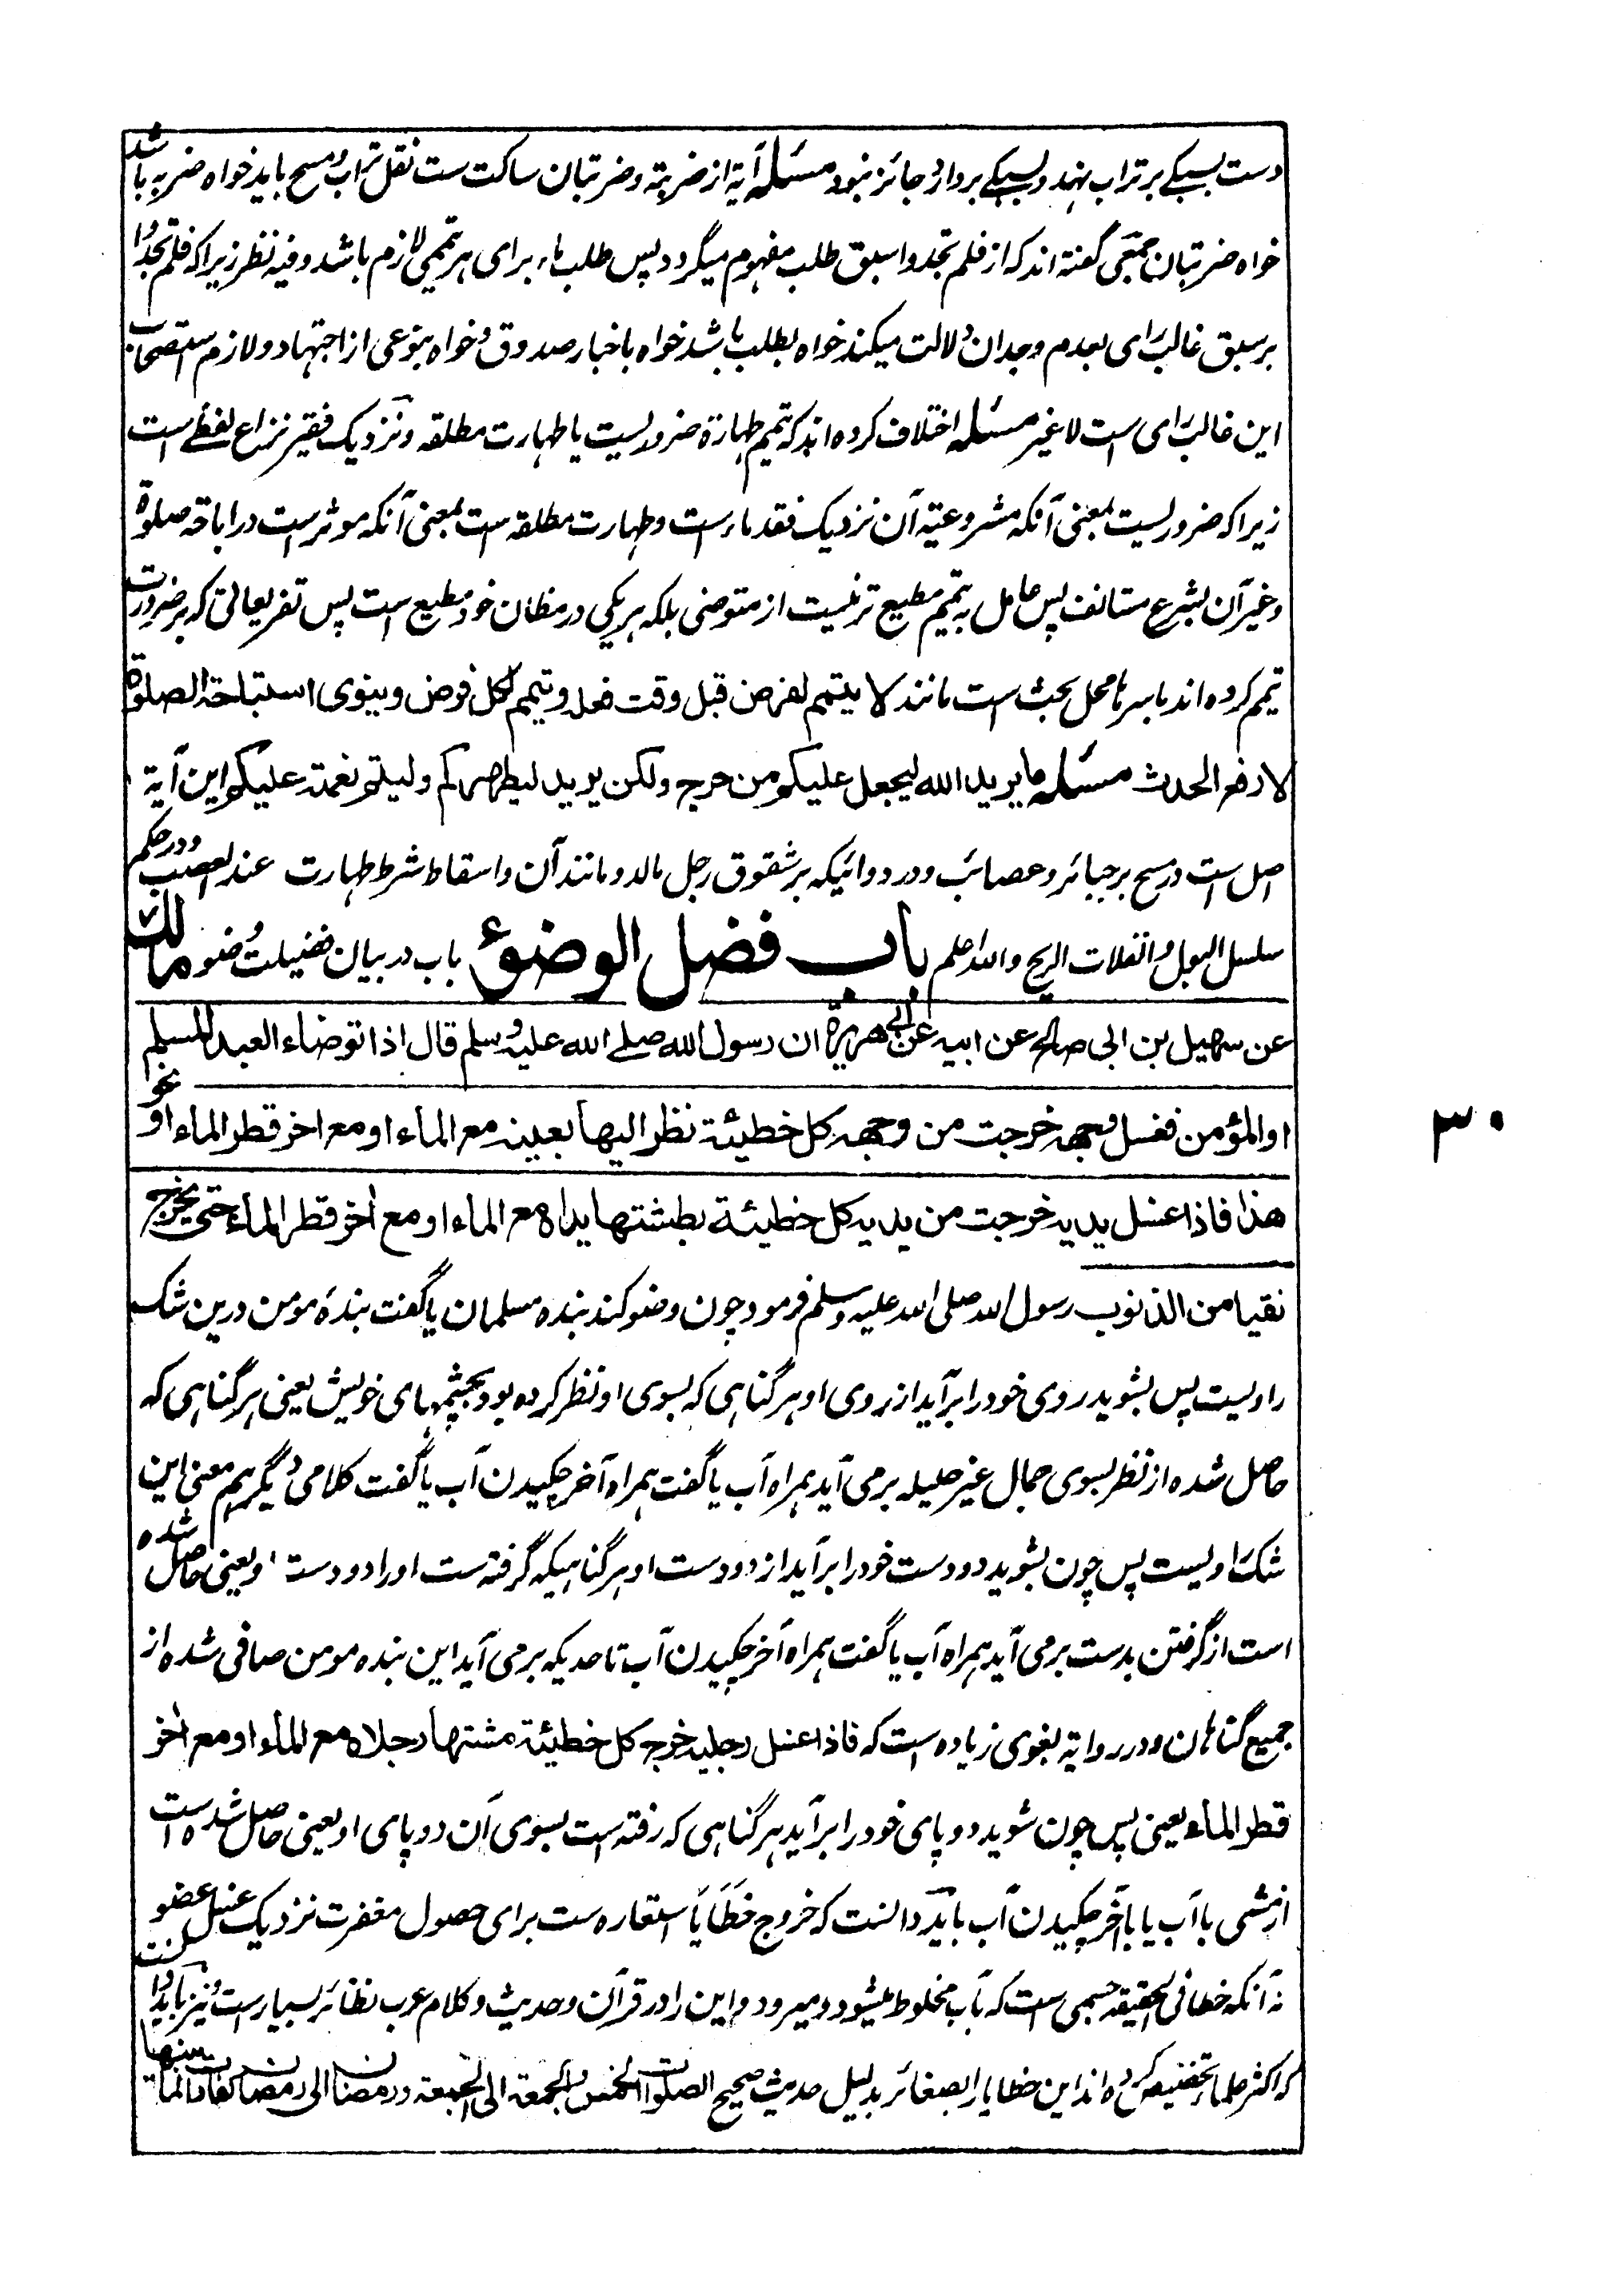 دست بسبکی بر تراب نهد و بسبکی بردارد جائز نبود مسئله آیة از ضربة و ضربتان ساکت ست نقل تراب و مسح باید خواه ضربه باشد
خواه ضربتان جمعی گفته اند که از فلم تجدوا سبق طلب مفهوم میگردد پس طلب ماء برای هر تیممی لازم باشد و فیه نظر زیرا که فلم تجدوا
بر سبق غالب رای بعدم وجدان دلالت میکند خواه بطلب باشد خواه باخبار صدوق و خواه بنوعی از اجتهاد و لازم استصحاب
این غالب رای است لا غیر مسئله اختلاف کرده اند که تیمم طهارة ضروریست یا طهارت مطلقه و نزدیک فقیر نزاع لفظی است
زیرا که ضروریست بمعنی آنکه مشروعیة آن نزدیک فقد ماء ست و طهارت مطلقه ست بمعنی آنکه موثر است در اباحة صلوة
و غیر آن بشرع مستانف پس عامل به تیمم مطیع تر نیست از متوضی بلکه هر یکی در مظان خود مطیع است پس تفریعاتی که بر ضرورت
تیمم کرده اند باسرها محل بحث است مانند لا یتیمم لفرض قبل وقت فعله و یتیمم لکل فرض و ینوی استباحة الصلوة
لا رفع الحدث مسئله ما یرید الله لیجعل علیکم من حرج ولکن یرید لیطهرکم ولیتم نعمته علیکم این آیة
اصل است در مسح بر جبائر و عصائب و در دوائیکه بر شقوق رجل مالد و مانند آن و اسقاط شرط طهارت عند العصب و در حکم
سلسل البول و انفلات الریح و الله اعلم باب فضل الوضوء باب در بیان فضیلت وضو مالک
عن سهیل بن ابی صالح عن ابیه عن ابی هریرة ان رسول الله صلے الله علیه وسلم قال اذا توضاء العبد المسلم
او المؤمن فغسل وجهه خرجت من وجهه کل خطیئة نظر الیها بعینه مع الماء او مع اخر قطر الماء او نحو
هذا فاذا غسل یدیه خرجت من یدیه کل خطیئة بطشتها یداه مع الماء او مع اخر قطر الماء حتی یخرج
نقیا من الذنوب رسول الله صلی الله علیه وسلم فرمود چون وضو کند بنده مسلمان یا گفت بندهٔ مومن درین شک
راویست پس بشوید روی خود را بر آید از روی او هر گناهی که بسوی او نظر کرده بود بچشمهای خویش یعنی هر گناهی که
حاصل شده از نظر بسوی جمال غیر حلیله بر می آید همراه آب یا گفت همراه آخر چکیدن آب یا گفت کلامی دیگر هم معنی این
شک راویست پس چون بشوید دو دست خود را بر آید از دو دست او هر گناهیکه گرفته ست او را دو دست او یعنی حاصل شده
است از گرفتن بدست بر می آید همراه آب یا گفت همراه آخر چکیدن آب تا حدیکه بر می آید این بنده مومن صافی شده از
جمیع گناهان و در روایة بغوی زیاده است که فاذا غسل رجلیه خرج کل خطیئة مشتها رجلاه مع الماء او مع اخر
قطر الماء یعنی پس چون شوید دو پای خود را بر آید هر گناهی که رفته است بسوی آن دو پای او یعنی حاصل شده است
از مشی با آب یا با آخر چکیدن آب باید دانست که خروج خطایا استعاره ست برای حصول مغفرت نزدیک غسل عضو
نه آنکه خطا فی الحقیقه جسمی است که بآب مخلوط میشود و میرود و این را در قرآن و حدیث و کلام عرب نظائر بسیار ست و نیز باید دانست
که اکثر علماء تخصیص کرده اند این خطایا را بصغائر بدلیل حدیث صحیح الصلوات الخمس و الجمعة الی الجمعة و رمضان الی رمضان کفارات لما بینها
۳۰